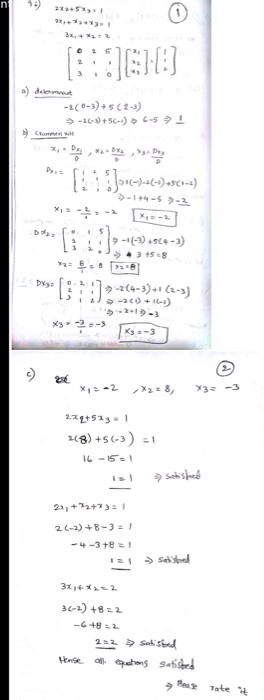 ①
2x2+5x3=1
2x1+x2+x3=1
3x1+x2=2
[0 2 5 2 1 1 3 1 0] [x1 x2 x3] = [1 1 2]
a) determinant
-2(0-3)+5(2-3)
⇒ -2(-3)+5(-1) ⇒ 6-5 ⇒ 1
x1 = Dx1/D, x2 = Dx2/D, x3 = Dx3/D
Dx1 = [1 2 5 1 1 1 2 1 0] ⇒ 1(-1)-2(-2)+5(1-2)
⇒ -1+4-5 ⇒ -2
x1 = -2/1 = -2 x1=-2
Dx2 = [0 1 5 2 1 1 3 2 0] ⇒ -1(-3)+5(4-3)
⇒ 3+5=8
x2 = 8/1 = 8 x2=8
Dx3 = [0 2 1 2 1 1 3 1 2] ⇒ -2(4-3)+1(2-3)
⇒ -2(1)+1(-1)
⇒ -2-1 ⇒ -3
x3 = -3/1 = -3 x3=-3
②
c) x1=-2, x2=8, x3=-3
2x2+5x3=1
2(8)+5(-3)=1
16-15=1
1=1 ⇒ satisfied
2x1+x2+x3=1
2(-2)+8-3=1
-4-3+8=1
1=1 ⇒ satisfied
3x1+x2=2
3(-2)+8=2
-6+8=2
2=2 ⇒ satisfied
Hense all equations satisfied
⇒ Please rate it